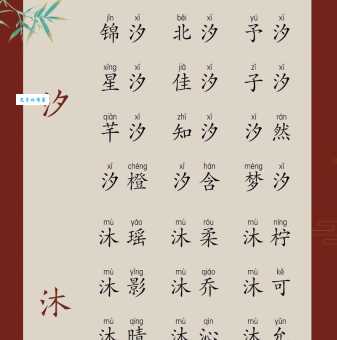 jǐn xī běi xī yú xī
锦汐 北汐 予汐
xīng xī jiā xī zǐ xī
汐
星汐 佳汐 子汐
qiān xī zhī xī xī rán
芊汐 知汐 汐然
xī chéng xī hán mèng xī
汐橙 汐含 梦汐
mù yáo mù róu mù níng
沐瑶 沐柔 沐柠
mù yǐng mù qiáo mù kě
沐
沐影 沐乔 沐可
mù qíng mù qìn mù yǔn
沐晴 沐沁 沐允